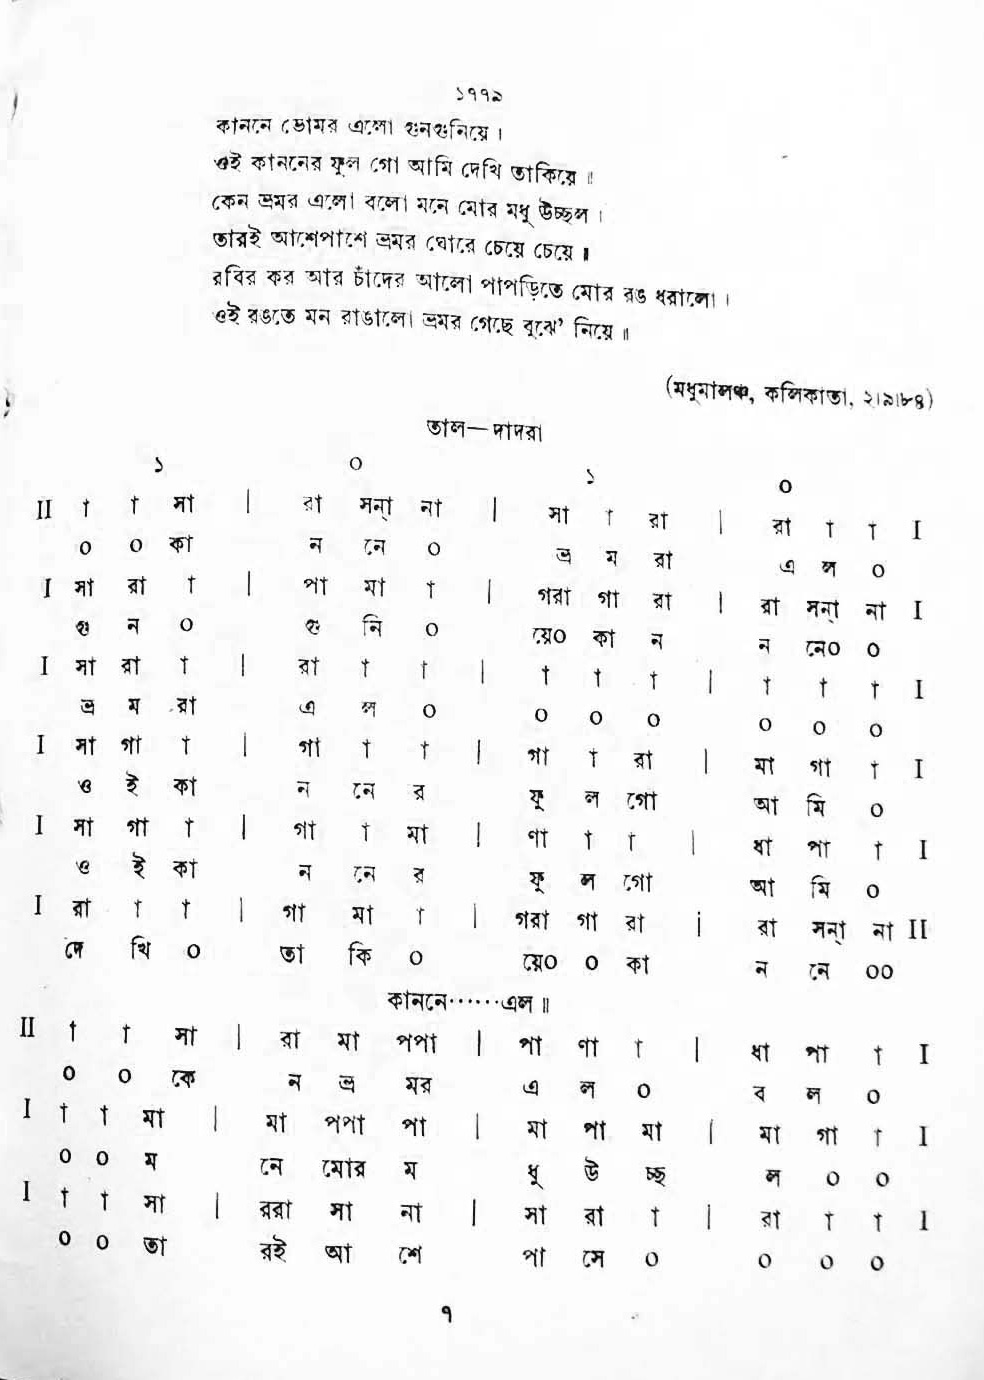 ১৭৭৯
কাননে ভোমর এলো গুনগুনিয়ে।
ওই কাননের ফুল গো আমি দেখি তাকিয়ে॥
কেন ভ্রমর এলো বলো মনে মোর মধু উচ্ছল।
তারই আশেপাশে ভ্রমর ঘোরে চেয়ে চেয়ে॥
রবির কর আর চাঁদের আলো পাপড়িতে মোর রঙ ধরালো।
ওই রঙতে মন রাঙালো ভ্রমর গেছে বুঝে’ নিয়ে॥
(মধুমালঞ্চ, কলিকাতা, ২।৯।৮৪)
তাল—দাদরা
১ ০ ১ ০
II † † সা | রা সন্া না | সা † রা | রা † † I
০ ০ কা ন নে ০ ভ্র ম রা এ ল ০
I সা রা † | পা মা † | গরা গা রা | রা সন্া না I
গু ন ০ গু নি ০ য়ে০ কা ন ন নে০ ০
I সা রা † | রা † † | † † † | † † † I
ভ্র ম রা এ ল ০ ০ ০ ০ ০ ০ ০
I সা গা † | গা † † | গা † রা | মা গা † I
ও ই কা ন নে র ফু ল গো আ মি ০
I সা গা † | গা † মা | ণা † † | ধা পা † I
ও ই কা ন নে র ফু ল গো আ মি ০
I রা † † | গা মা † | গরা গা রা | রা সন্া না II
দে খি ০ তা কি ০ য়ে০ ০ কা ন নে ০০
কাননে······এল॥
II † † সা | রা মা পপা | পা ণা † | ধা পা † I
০ ০ কে ন ভ্র মর এ ল ০ ব ল ০
I † † মা | মা পপা পা | মা পা মা | মা গা † I
০ ০ ম নে মোর ম ধু উ চ্ছ ল ০ ০
I † † সা | ররা সা না | সা রা † | রা † † I
০ ০ তা রই আ শে পা সে ০ ০ ০ ০
৭